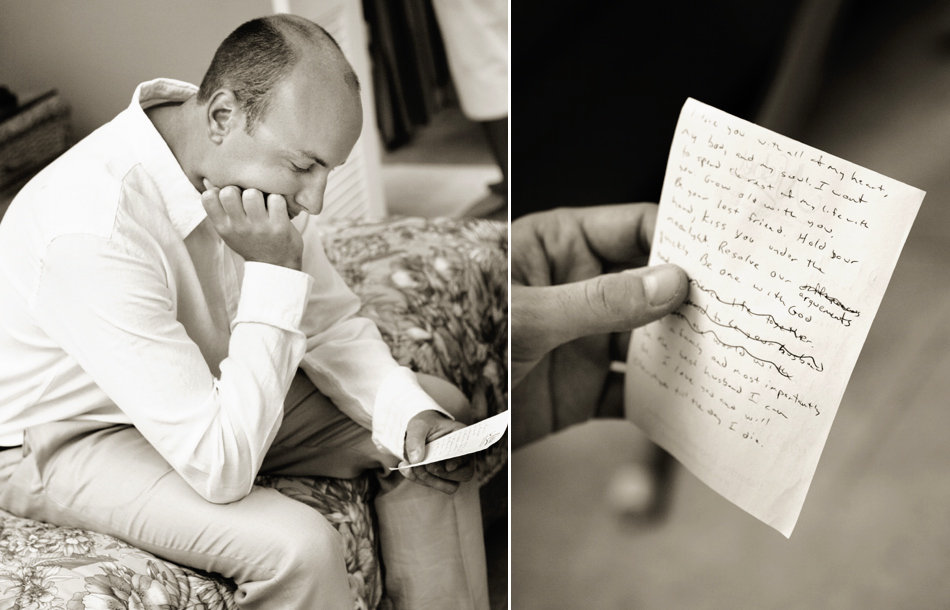 love you with all of my heart,
my body and my soul. I want
to spend the rest of my life with
you. Grow old with you.
Be your best friend. Hold your
hand, kiss you under the
moonlight. Resolve our
quickly. arguements
Be one with God
together
husband
a family and most importantly
the best husband I can
be. I love you and will
till the day I die.